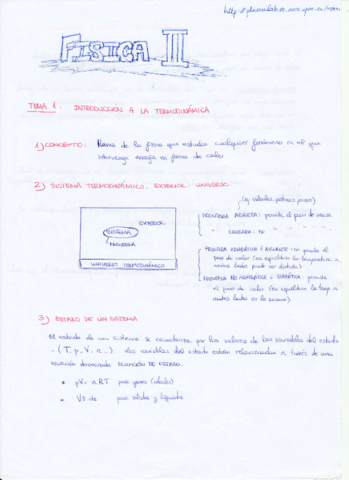 FISICA II
TEMA 1: INTRODUCCION A LA TERMODINÁMICA
1) CONCEPTO: Rama de la física que estudia cualquier fenómeno en el que
intervenga energía en forma de calor
2) SISTEMA TERMODINÁMICO. EXTERIOR. UNIVERSO
FRONTERA ABIERTA: permite el paso de masa
" CERRADA: NO
EXTERIOR
SISTEMA
FRONTERA
UNIVERSO TERMODINÁMICO
FRONTERA ADIABÁTICA O AISLANTE: no permite el
paso de calor (en equilibrio la temperatura a
ambos lados puede ser distinta)
FRONTERA NO ADIABÁTICA O DIATÉRMICA: permite
el paso de calor (en equilibrio la temp a
ambos lados es la misma)
3) ESTADO DE UN SISTEMA
El estado de un sistema se caracteriza por los valores de las variables del estado
(T, p, V, n...). Las variables del estado están relacionadas a través de una
ecuación denominada ECUACIÓN DE ESTADO.
* pV = nRT para gases (ideales)
* para sólidos y líquidos